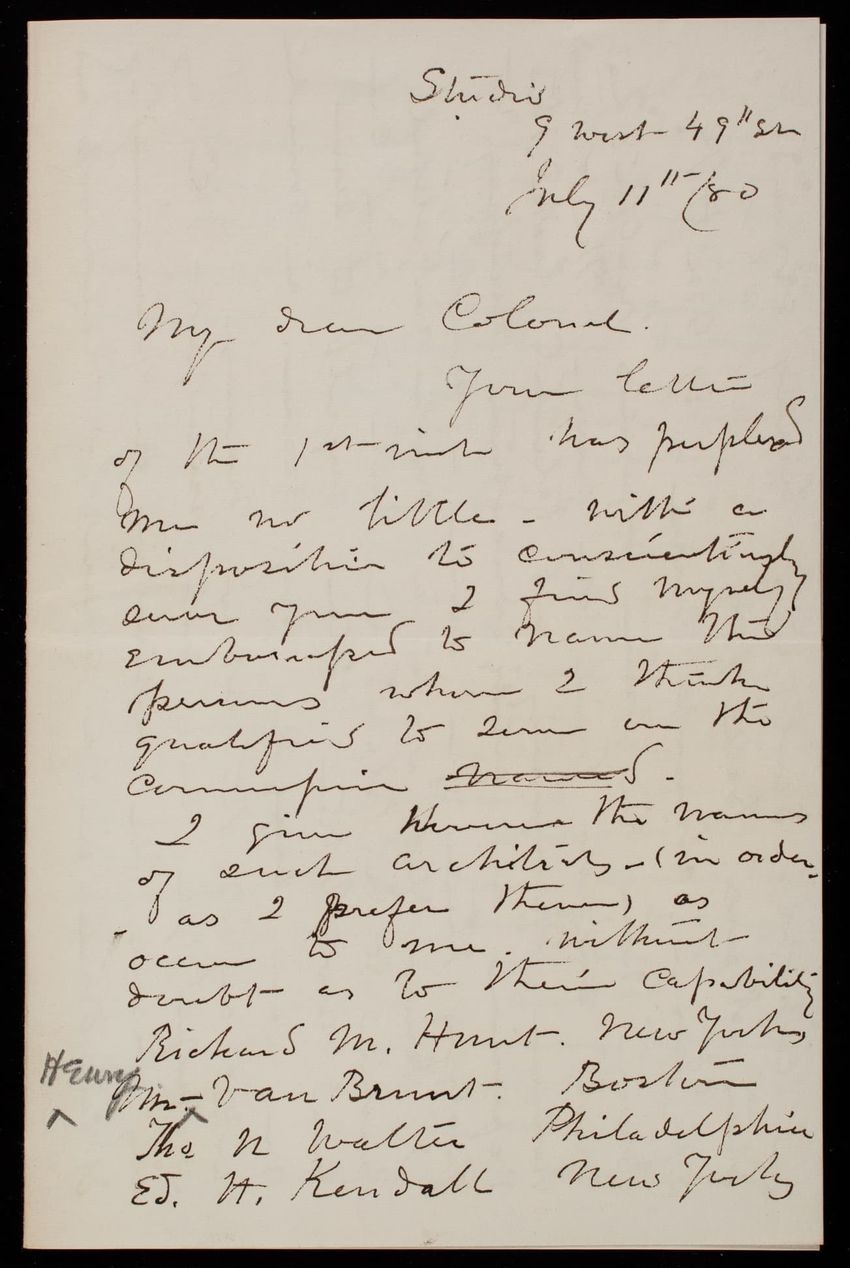 Studio
9 West 49th St
July 11th /80
My dear Colonel.
Your letter
of the 1st inst has perplexed
me no little - with a
disposition to conscientiously
serve you I find myself
embarrassed to name the
persons whom I think
qualified to serve on the
Commission named.
I give however the names
of such architects - (in order
as I prefer them) as
occur to me without
doubt as to their capability
Richard M. Hunt. New York
Henry
Mr Van Brunt. Boston
Tho U Walter Philadelphia
Ed. H. Kendall New York